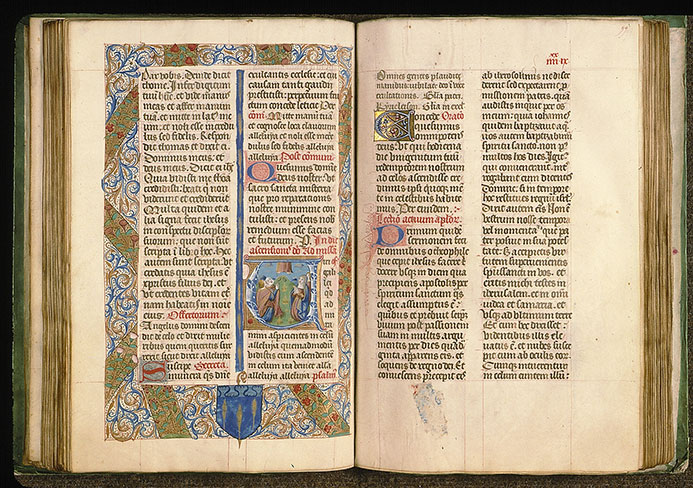 Pax vobis. Deinde dicit
thome. Infer digitum
tuū huc. et vide manus
meas. et affer manum
tuā. et mitte in latꝰ me
um. et noli esse incredu
lus sed fidelis. Respon
dit thomas et dixit ei.
Dominus meus. et
deus meus. Dicit ei ihc̄
Quia vidisti me thoma
credidisti. beati qͥ non
viderunt et crediderūt
Multa quidem et a
lia signa fecit ihesus
in conspectu discipulor
suorum. que non sūt
scripta ī libro hoc. hec
autem sunt scripta. vt
credatis quia ihesus ē
xpristus filius dei. et
vt credentes vitam et
nam habeatis in noīe
eius. Offertorium.
Angelus domini descen
dit de celo et dixit mulie
ribus quem queritis sur
rexit sicut dixit alleluya
Suscipe Secreta
munera qs̄ dn̄e
exultantis ecclesie. et cui
causam tanti gaudii
prestitisti. perpetuum fru
ctum concede leticie Per
cōm̄. Mitte manū tuā
et cognosce loca clavorum
alleluya et noli esse incre
dulus sed fidelis alleluya
alleluya Post cōmuni
Quesumus domine
deus noster. vt
sacro sancta misteria
que pro reparationis
nostre munimine con
tulisti. et presens nobis
remedium esse facias
et futurum. P. In die
ascensionis dn̄i Ad missā
Viri
galile
i
quid
ad
mi
ra
mini aspicientes in celū
alleluya quemadmodū
vidistis eum ascendentē
in celum ita veniet alla
alleluya alleluya psalm̄
Omnes gentes plaudite
manibus. iubilate deo ī voce
exultationis. Glīa patri.
Kyrieleison. Glīa in excel
Concede Oratō
quesumus
omnipotens
deus. vt qui hodierna
die unigenitum tuū
redemptorem nostrum
ad celos ascendisse cre
dimus ipsi quoqꝫ men
te in celestibus habite
mus. Per eundem.
Lectio actuum aplor̄
Primum quidē
sermonem feci
de omnibus o theophile
que cepit ihesus facere et
docere usqꝫ in diem qua
precipiens apostolis per
spiritum sanctum qͦs
elegit assumptus ē.
quibus et prebuit seipm̄
vivum post passionem
suam in multis argu
mentis per dies quadra
ginta apparens eis. et
loquens de regno dei. Et
convescens precepit eis
ab iherosolimis ne disce
derent sed expectarent p
missionem patris. quā
audistis inquit per os
meum. quia iohannes
quidem baptizavit aqͣ.
vos autem baptizabimī
spiritu sancto. non pꝰ
multos hos dies. Igit
qui convenerant. inter
rogabant eum dicentes
Domine. si in tempore
hoc restitues regnū israel.
Dixit autem eis. Non ē
vestrum nosse tempora
vel momenta que pa
ter posuit in sua potes
tate. Sed accipietis vir
tutem supervenientis
spūssancti in vos. et
eritis michi testes in
iherusalem. et in omni
iudea et samaria. et
usqꝫ ad ultimum terre
Et cum hec dixisset.
videntibus illis ele
vatus ē. et nubes susce
pit eum ab oculis eor̄.
Cumqꝫ intuerentur
in celum euntem illum.